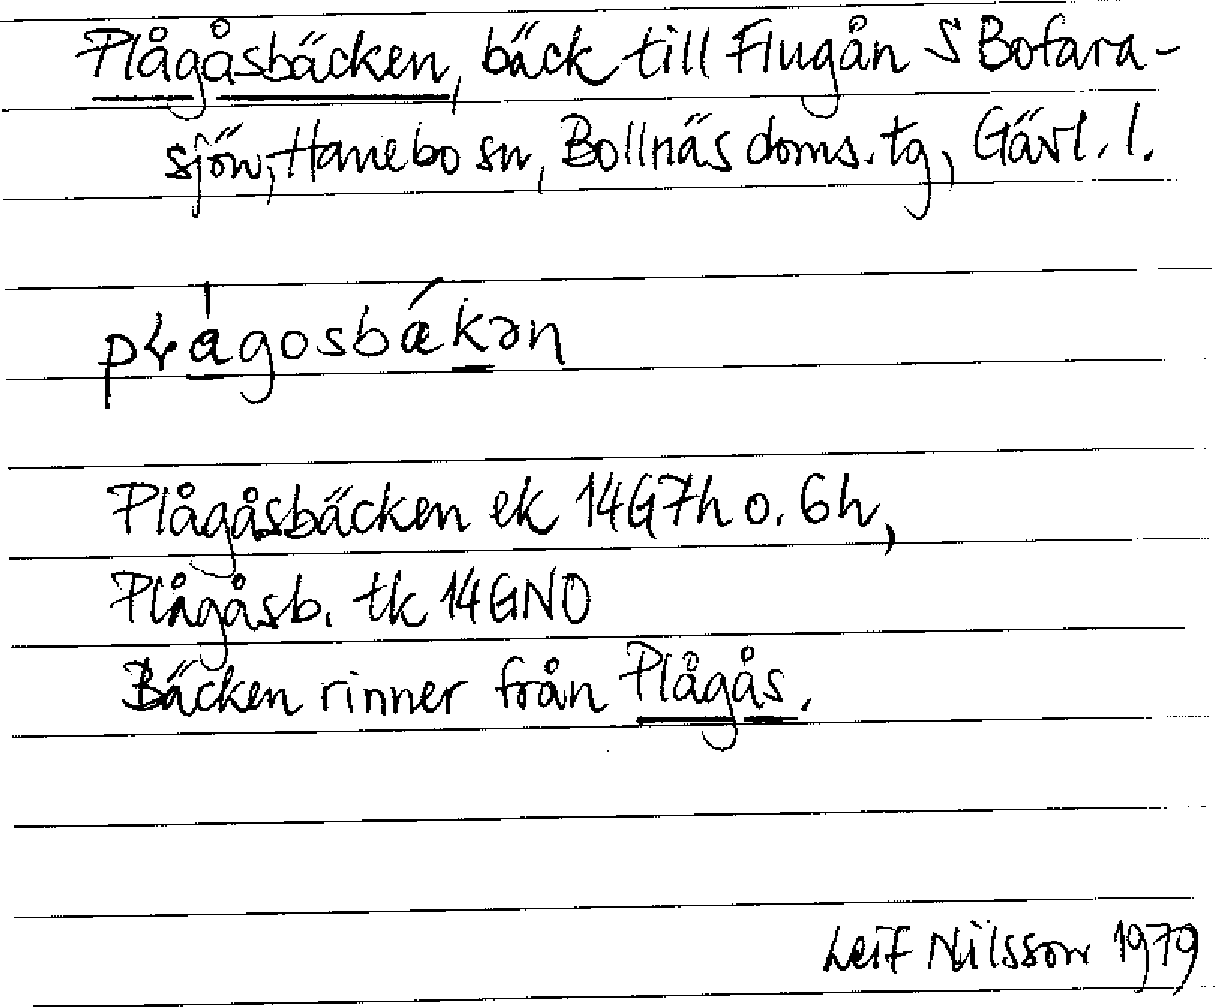 Plågåsbäcken, bäck till Flugån S Bofara-
sjön, Hanebo sn, Bollnäs doms. tg, Gävl. l.
Plågåsbäcken ek 14G7h o. 6h,
Plågåsb. tk 14GNO
Bäcken rinner från Plågås.
Leif Nilsson 1979